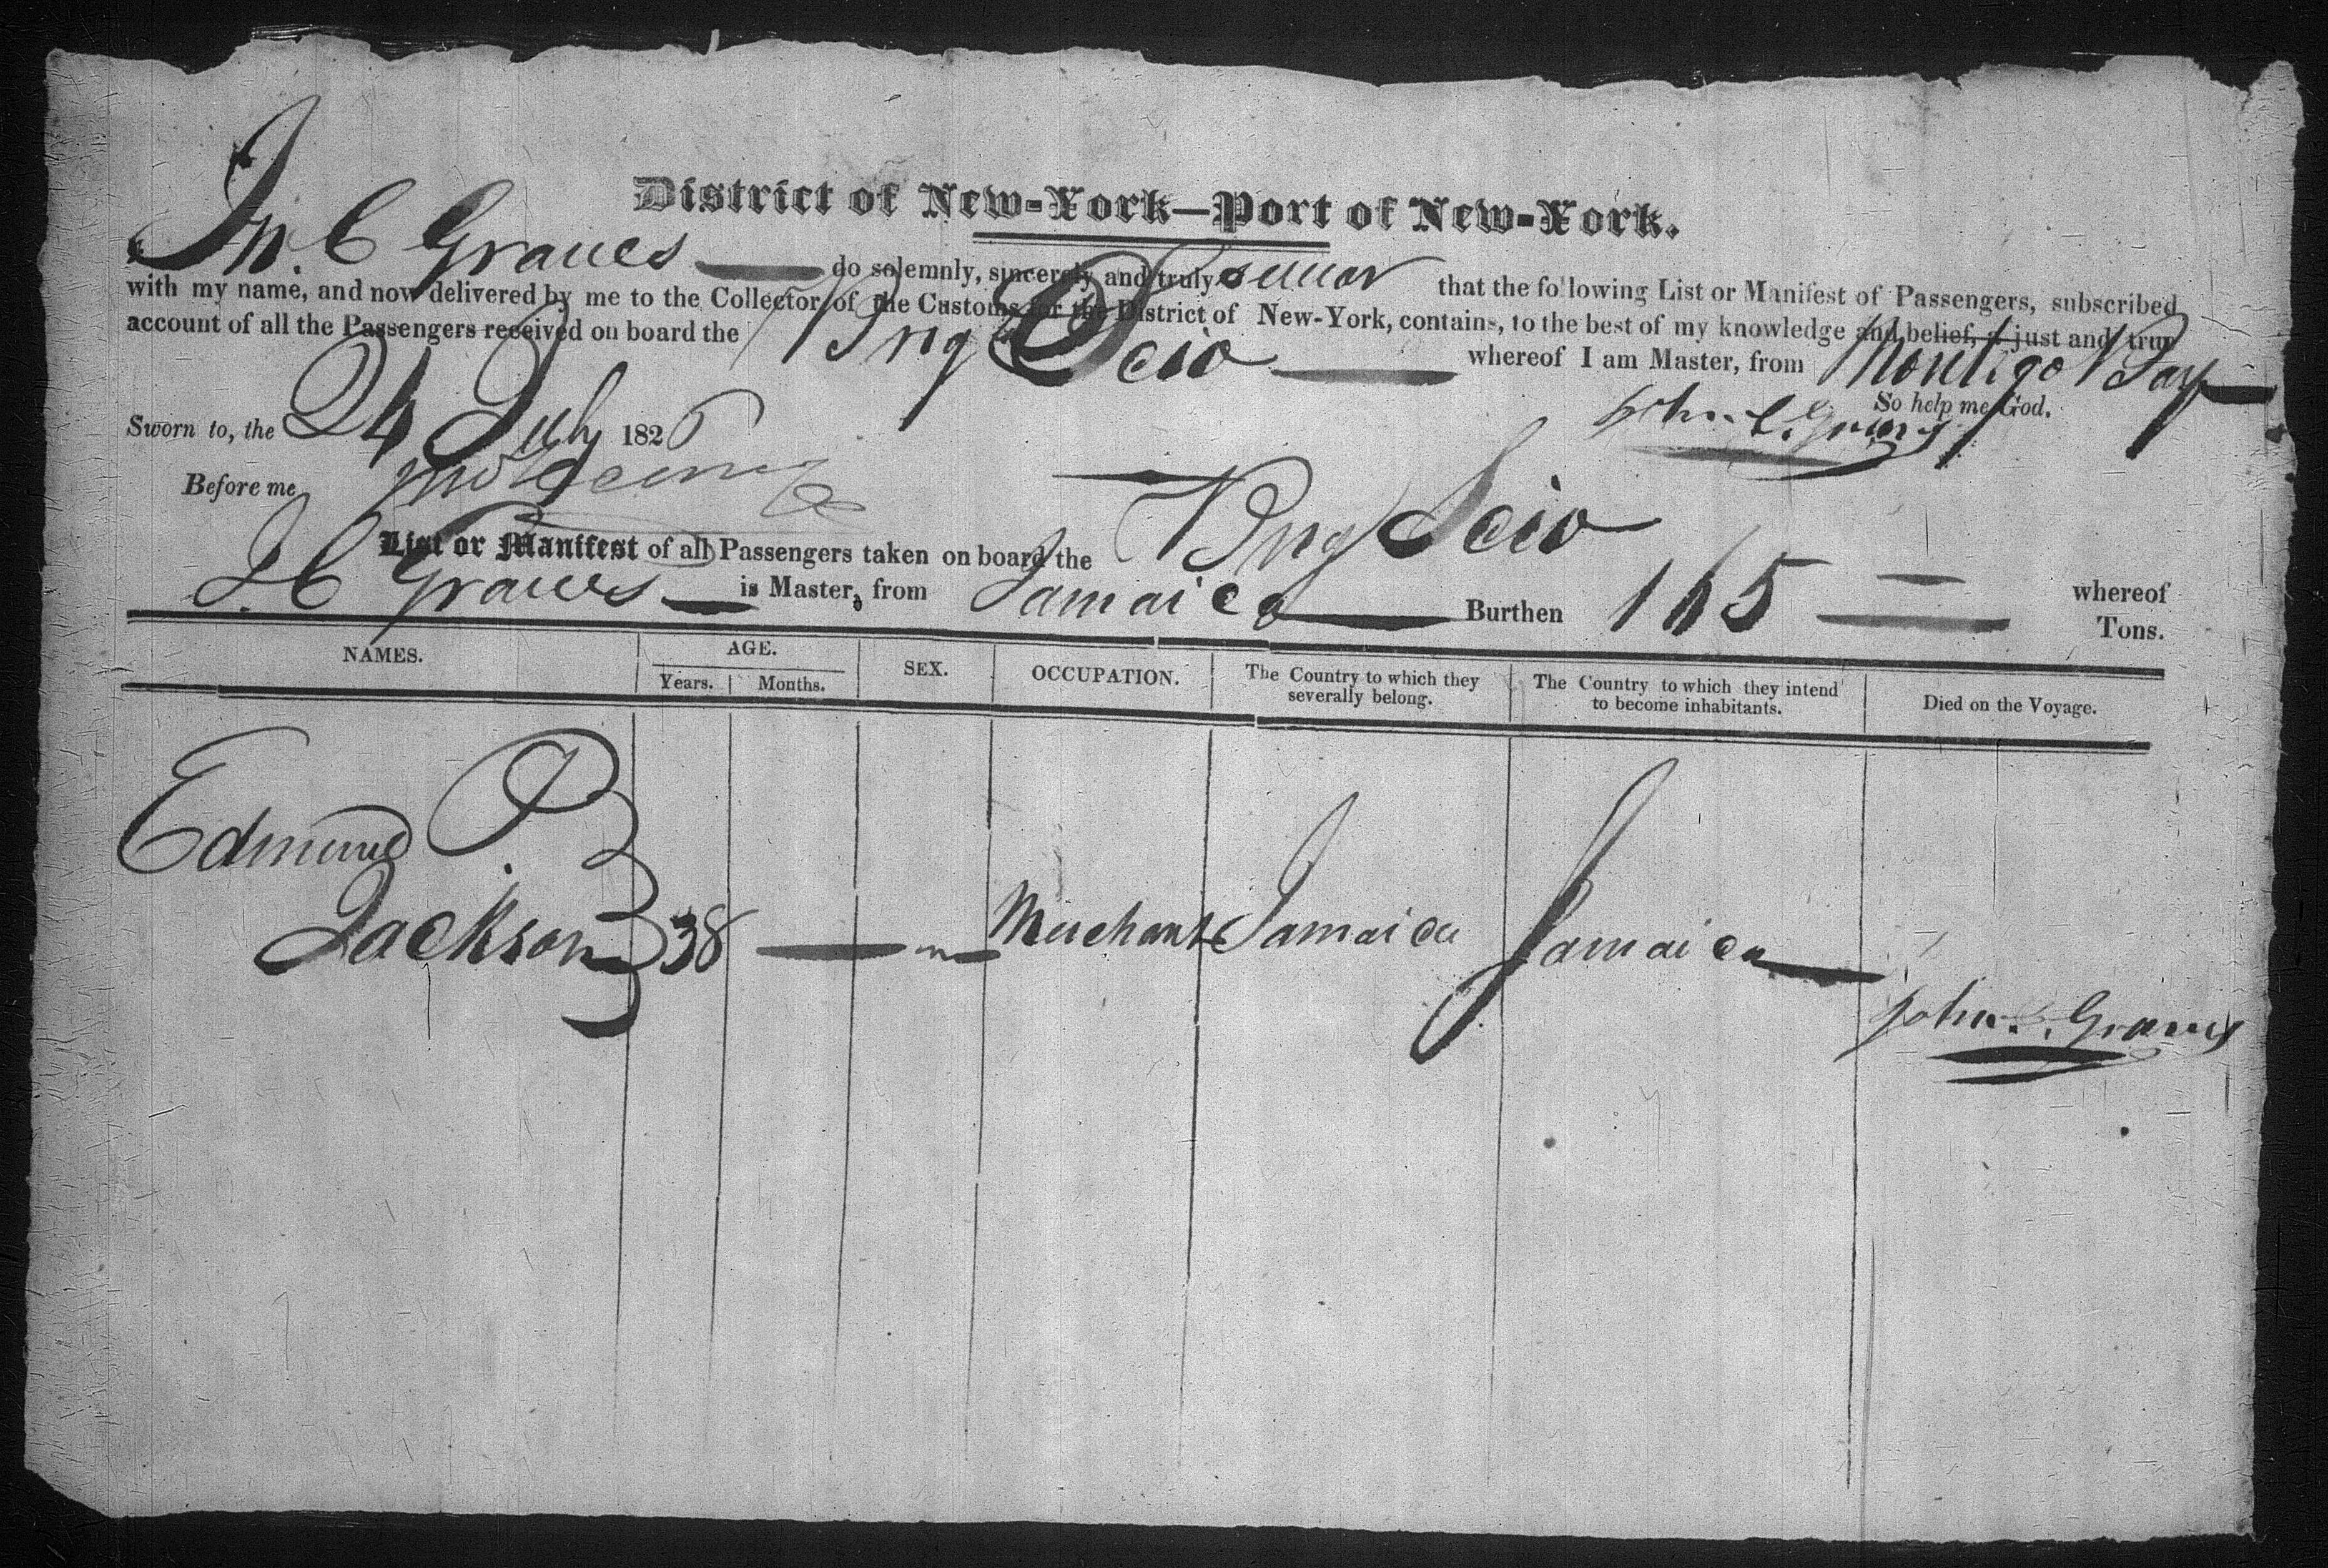 District of New-York—Port of New-York.
I Jn. C Graves do solemnly, sincerely and truly swear that the following List or Manifest of Passengers, subscribed
with my name, and now delivered by me to the Collector of the Customs for the District of New-York, contains, to the best of my knowledge and belief, a just and true
account of all the Passengers received on board the Brig Scio whereof I am Master, from Montigo Bay
So help me God.
Sworn to, the 24 July 1826 John C. Graves
Before me
List or Manifest of all Passengers taken on board the Brig Scio whereof
J. C Graves is Master, from Jamaica Burthen 165 Tons.
NAMES. AGE. SEX. OCCUPATION. The Country to which they severally belong. The Country to which they intend to become inhabitants. Died on the Voyage.
Years. Months.
Edmund P.
Jackson 38 — m Merchant Jamaica Jamaica
John C. Graves